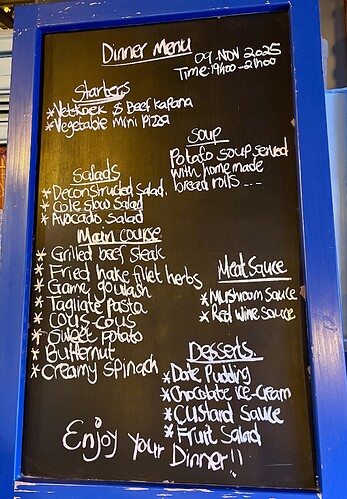 Dinner Menu
09 NOV 2025
Time: 19h00-21h00
Starters
* Vetkoek & Beef Kapana
* Vegetable Mini Pizza
Soup
Potato soup served
with home made
bread rolls ...
Salads
* Deconstructed salad.
* Cole slow Salad
* Avocado salad
Main course
* Grilled beef steak
* Fried hake fillet herbs
* Game goulash
* Tagliate pasta
* Cous cous
* Sweet potato
* Butternut
* Creamy spinach
Meat Sauce
* Mushroom sauce
* Red wine sauce
Desserts.
* Date Pudding
* Chocolate ice-cream
* Custard Sauce
* Fruit Salad
Enjoy your Dinner!!